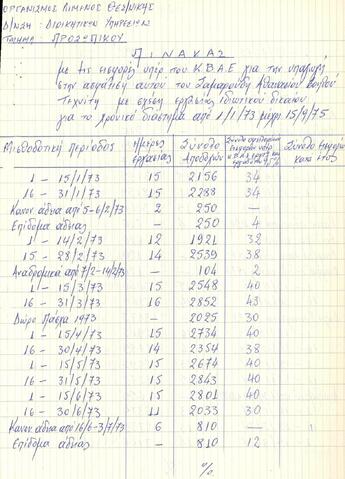 ΟΡΓΑΝΙΣΜΟΣ ΛΙΜΑΝΟΣ ΘΕΣ/ΝΙΚΗΣ
Δ/ΝΣΗ: ΔΙΟΙΚΗΤΙΚΩΝ ΥΠΗΡΕΣΙΩΝ
ΤΜΗΜΑ ΠΡΟΣΩΠΙΚΟΥ
ΠΙΝΑΚΑΣ
με τις εισφορές υπέρ του Κ.Β.Α.Ε για την υπαγωγή
στην ασφάλιση αυτού του Αθανασίου Βοηθού
Τεχνίτη με σχέση εργασίας ιδιωτικού δικαίου
για το χρονικό διάστημα από 1/1/73 μέχρι 15/9/75
Μισθοδοτική Περίοδος Ημέρες εργασίας Σύνολο Αποδοχών Σύνολο εισφορών κατά έτος
1 - 15/1/73 15 2156 34
16 - 31/1/73 15 2288 34
Κανον. άδεια από 5-6/2/73 2 250 —
Επίδομα άδειας — 250 4
1 - 14/2/73 12 1921 32
15 - 28/2/73 14 2539 38
Αναδρομικά από 7/2-14/2/73 — 104 2
1 - 15/3/73 15 2548 40
16 - 31/3/73 16 2852 43
Δώρο Πάσχα 1973 — 2025 30
1 - 15/4/73 15 2734 40
16 - 30/4/73 14 2354 38
1 - 15/5/73 15 2674 40
16 - 31/5/73 15 2843 40
1 - 15/6/73 15 2801 40
16 - 30/6/73 11 2033 30
Κανον. άδεια από 16/6-3/7/73 6 810 —
Επίδομα άδειας — 810 12